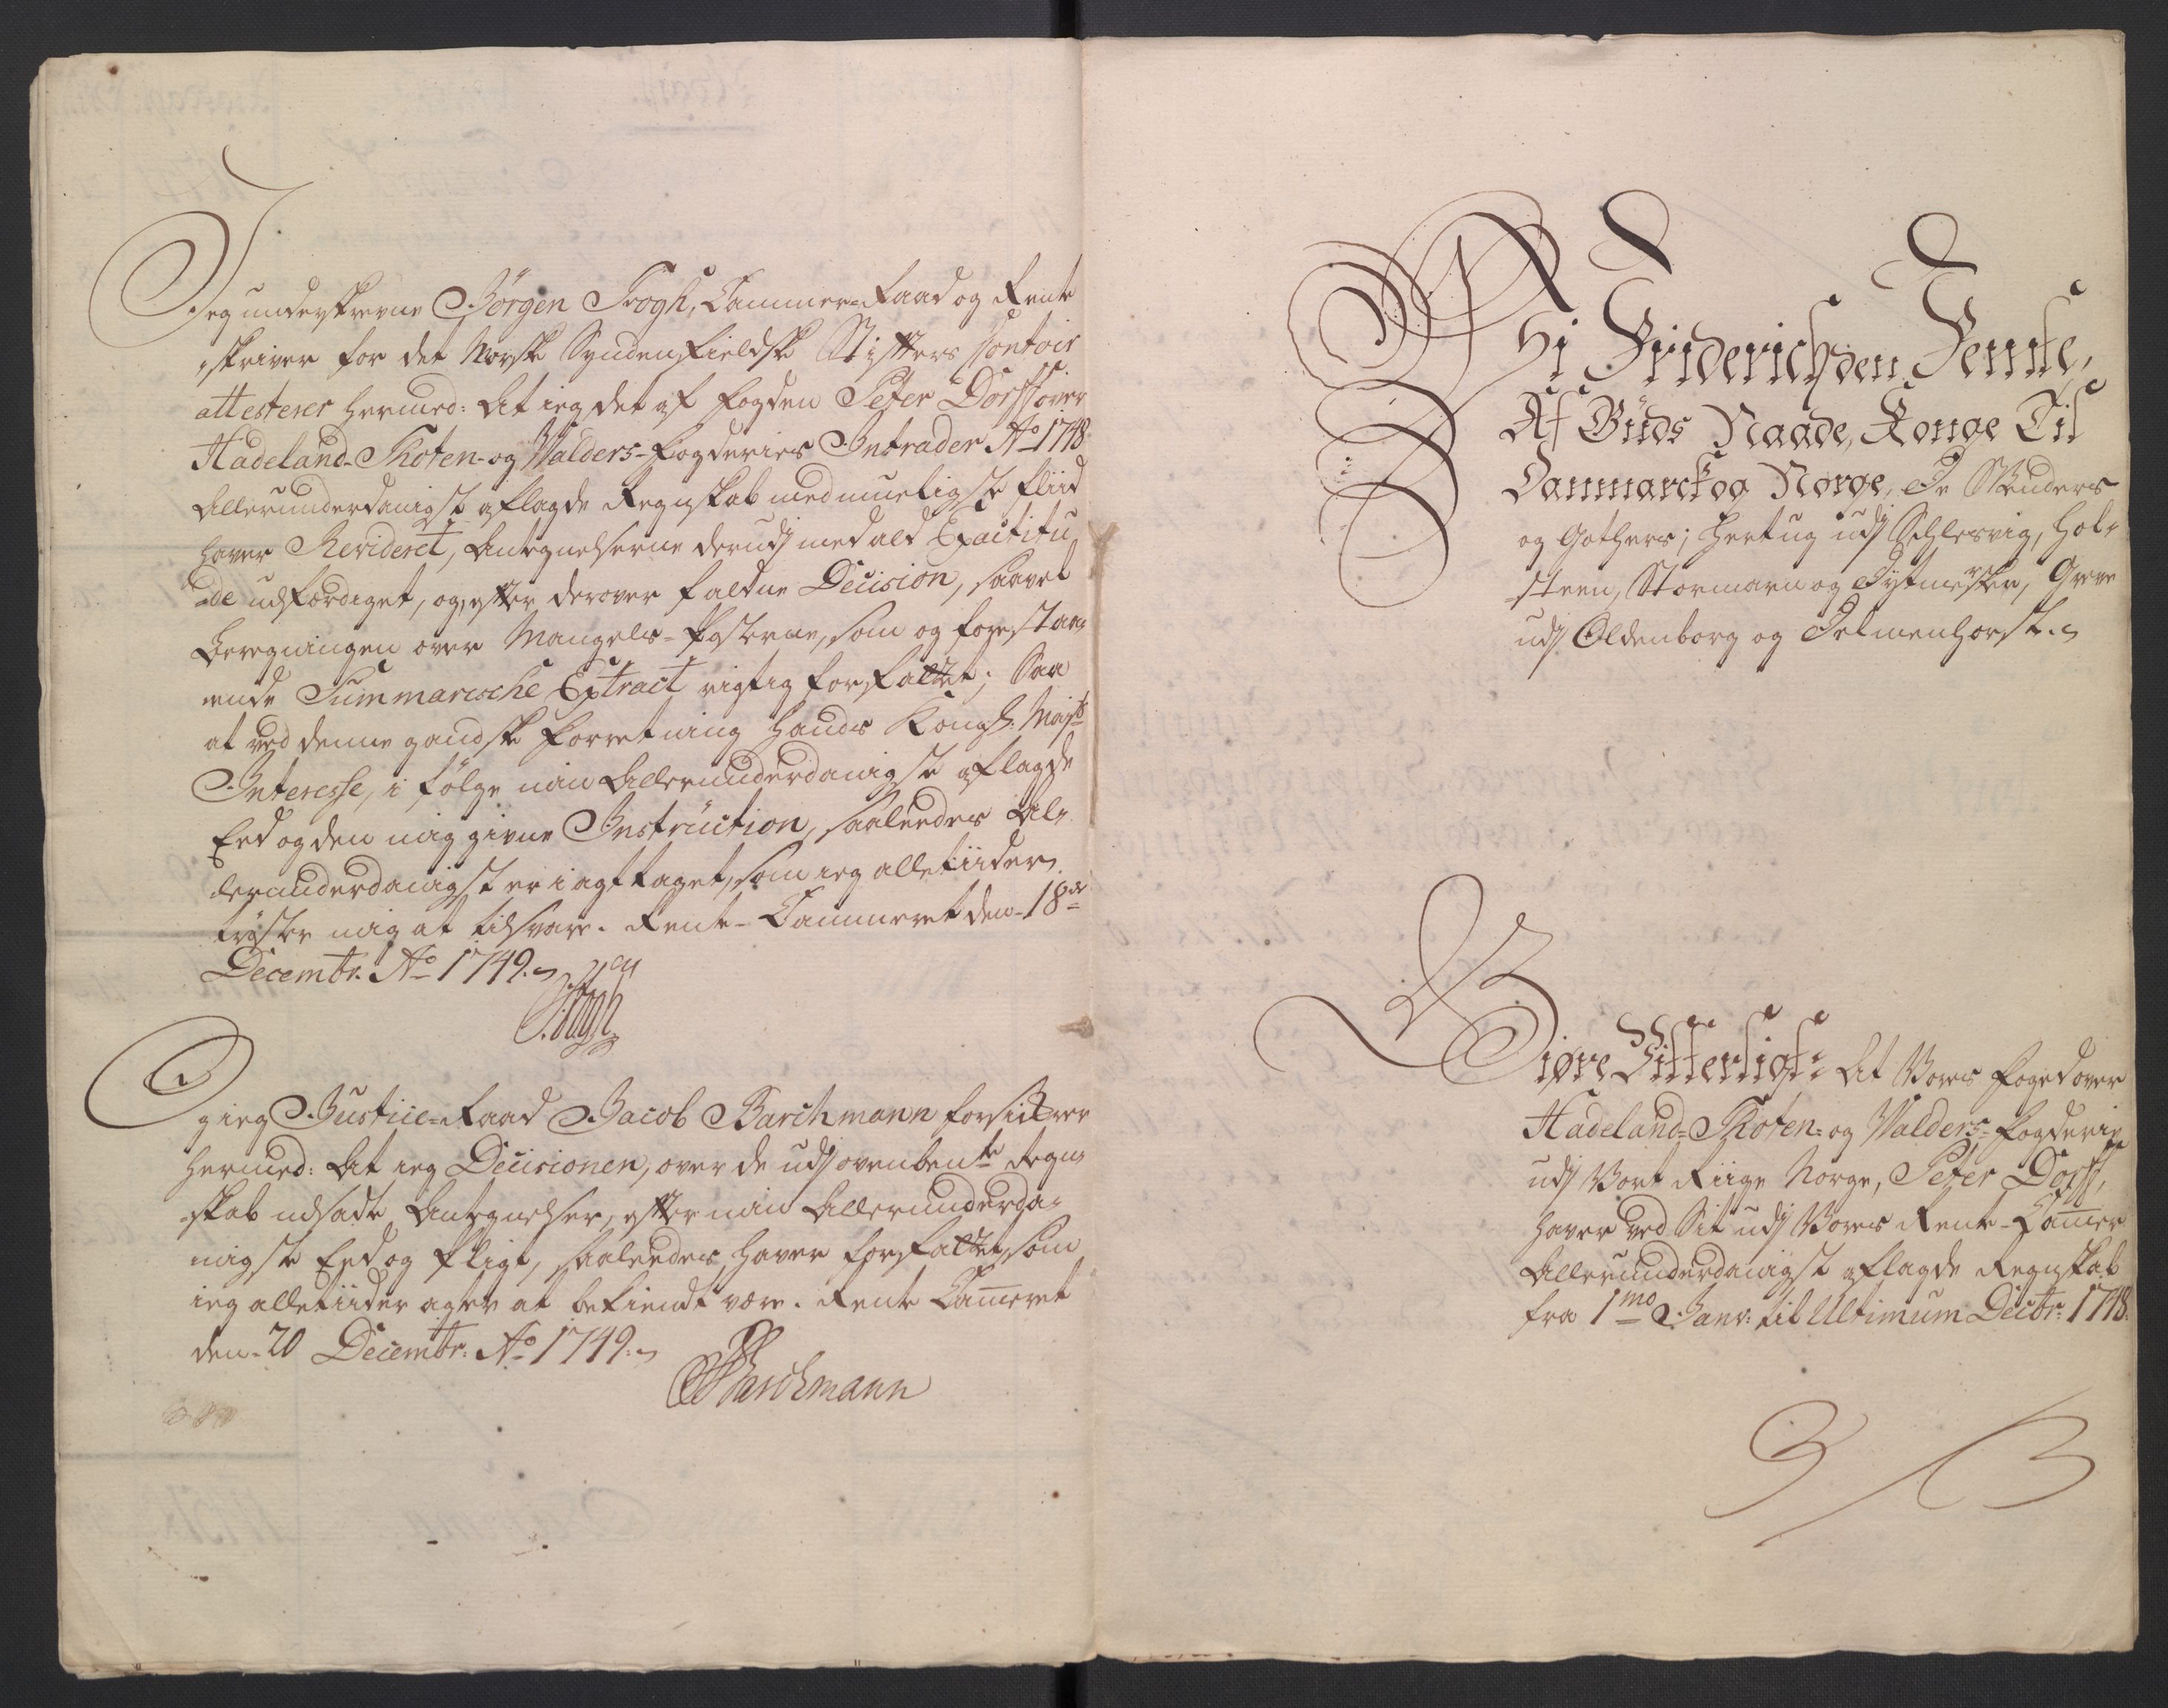 Jeg underskrevne Jörgen Trogh, Cammer-Raad og Rente
skriver for det Norske Syndenfieldske Stifters Contoir
attesterer hermed: At ieg det af Fogden Peter Dorff over
Hadeland- Thoten- og Walders-Fogderies Intrader Ao 1748
Allerunderdanigst aflagde Regnskab med mueligste fliid
haver Revideret, Antegnelserne derudj med ald Exactitu
de udfærdiget, og, efter derover faldne Decision, saavel
Beregningen over Mangels-Posterne, som og forestaa-
ende Summarische Extract rigtig forfattet; Saa
at ved denne gandske Forretning Hands Kongl: Mayts
Interesse, i følge min Allerunderdanigste aflagde
Eed og den mig givne Instruction, saaledes Al-
lerunderdanigst er iagttaget, som ieg alletiider
trøster mig at tilsvare. Rente-Cammeret den 18de
Decembr. Ao 1749.
JTrogh
Og ieg Justice-Raad Jacob Barchmann forsickrer
hermed: At ieg Decisionen, over de udj ovenbente Regn-
skab udsadte Antegnelser, efter min Allerunderda-
nigste Eed og Pligt, saaledes haver forfattet, som
ieg alletiider agter at bekiendt være. Rente Cam̅eret
den 20 Decembr: Ao 1749.
JBarchmann
Wi Friderich den Femte,
Af Guds Naade, Konge Til
Danmarck og Norge, De Wenders
og Gothers; Hertug udj Schlesvig, Hol-
steen, Stormarn og Dytmersken, Greve
udj Oldenborg og Delmenhorst.
Giøre Vitterligt: At Vores Foged over
Hadeland- Thoten- og Walders-Fogderie
udj Vort Riige Norge, Peter Dorff,
haver ved Sit udj Vores Rente-Cam̅er
Allerunderdanigst aflagde Regnskab
fra 1mo Janv: til Ultimum Decbr: 1748.